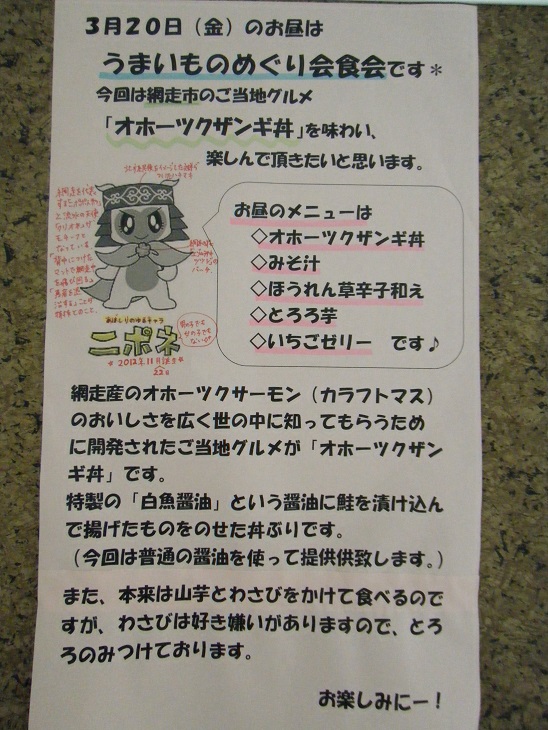 3月20日（金）のお昼は
うまいものめぐり会食会です＊
今回は網走市のご当地グルメ
「オホーツクザンギ丼」を味わい、
楽しんで頂きたいと思います。
お昼のメニューは
◇オホーツクザンギ丼
◇みそ汁
◇ほうれん草辛子和え
◇とろろ芋
◇いちごゼリー　です♪
あばしりのゆるキャラ
ニポネ
2012年11月
22日
網走産のオホーツクサーモン（カラフトマス）
のおいしさを広く世の中に知ってもらうため
に開発されたご当地グルメが「オホーツクザン
ギ丼」です。
特製の「白魚醤油」という醤油に鮭を漬け込ん
で揚げたものをのせた丼ぶりです。
（今回は普通の醤油を使って提供供致します。）
また、本来は山芋とわさびをかけて食べるので
すが、わさびは好き嫌いがありますので、とろ
ろのみつけております。
お楽しみにー！